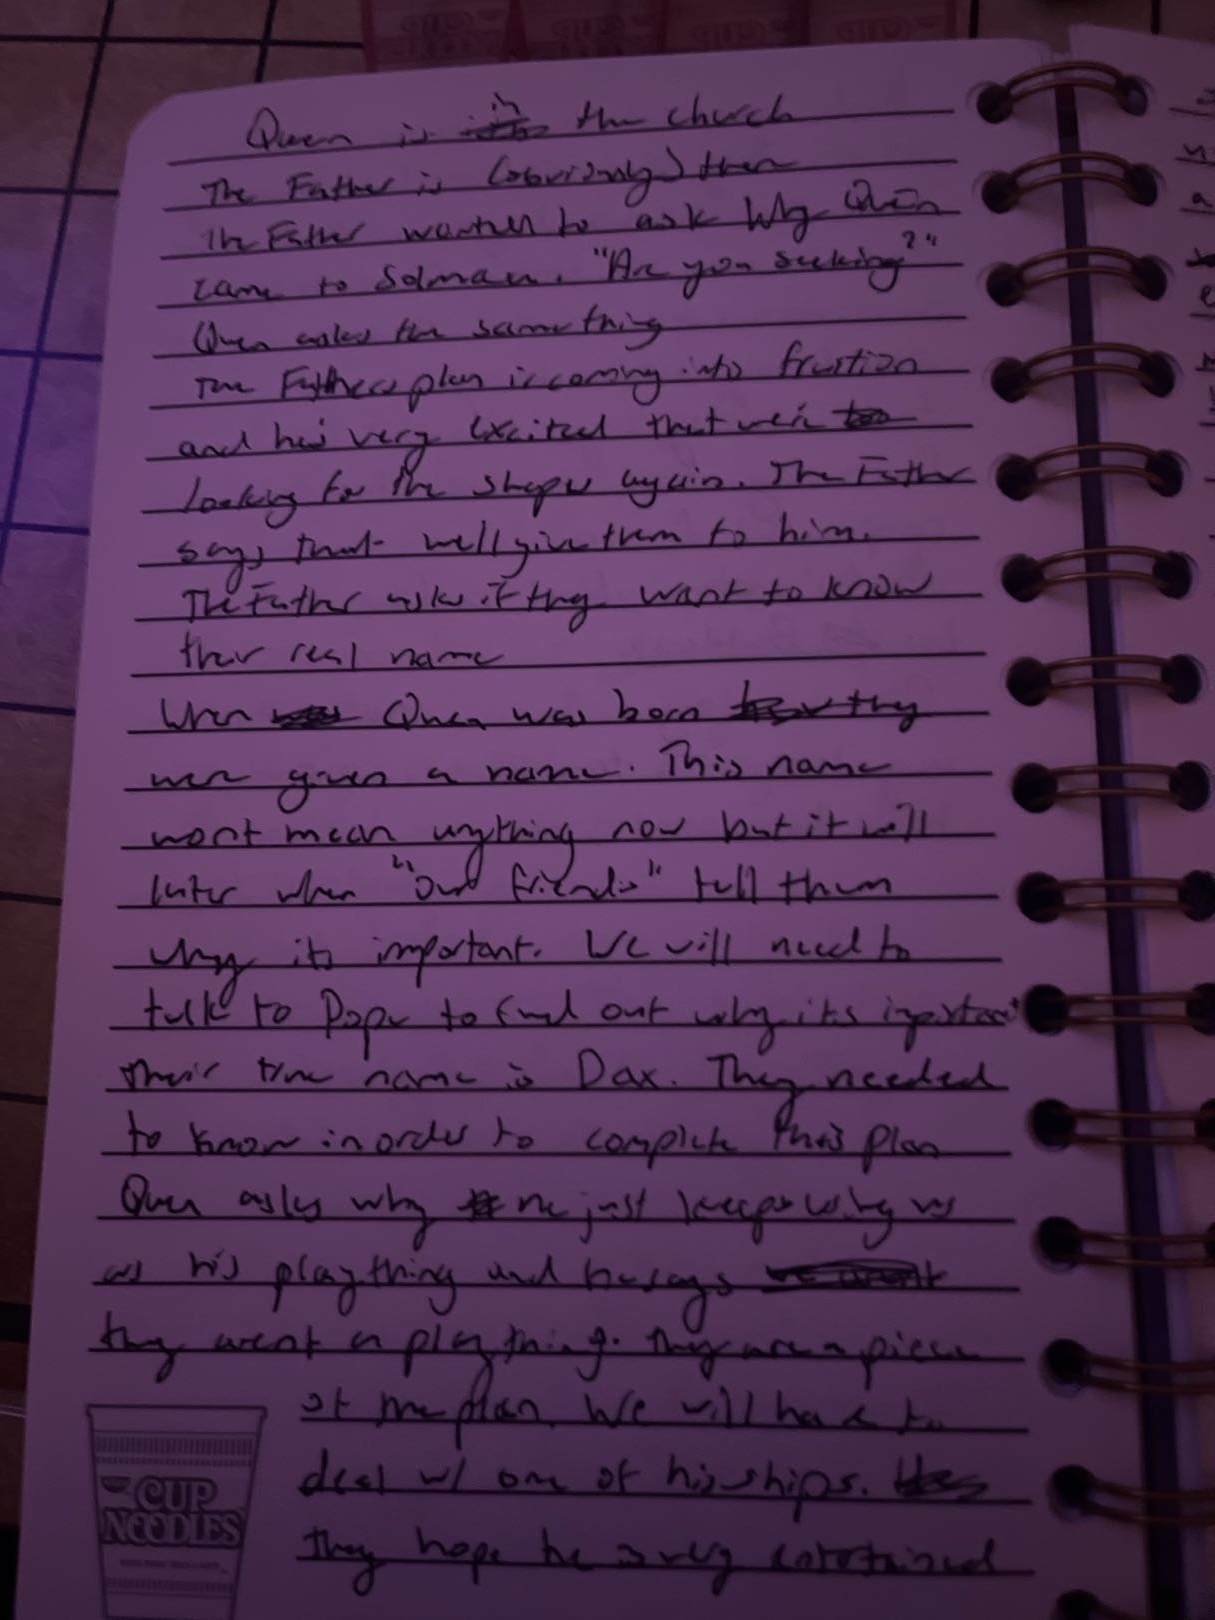 Quen is in the church
The Father is (obviously) then
The Father wanted to ask why Quen
came to Solman. "Are you seeking?"
Quen asks the same thing
The Fathers plan is coming into fruition
and he's very excited that we're
looking for the shapes again. The Father
says that we'll give them to him.
The Father asks if they want to know
their real name
When Quen was born they
were given a name. This name
wont mean anything now but it will
later when "our friends" tell them
why its important. We will need to
talk to Pope to find out why its important
Their true name is Dax. They needed
to know in order to complete this plan
Quen asks why he just keeps using us
as his plaything and he says
they arent a plaything. They are a piece
of the plan. We will have to
deal w/ one of his ships.
They hope he is very entertained
CUP
NOODLES